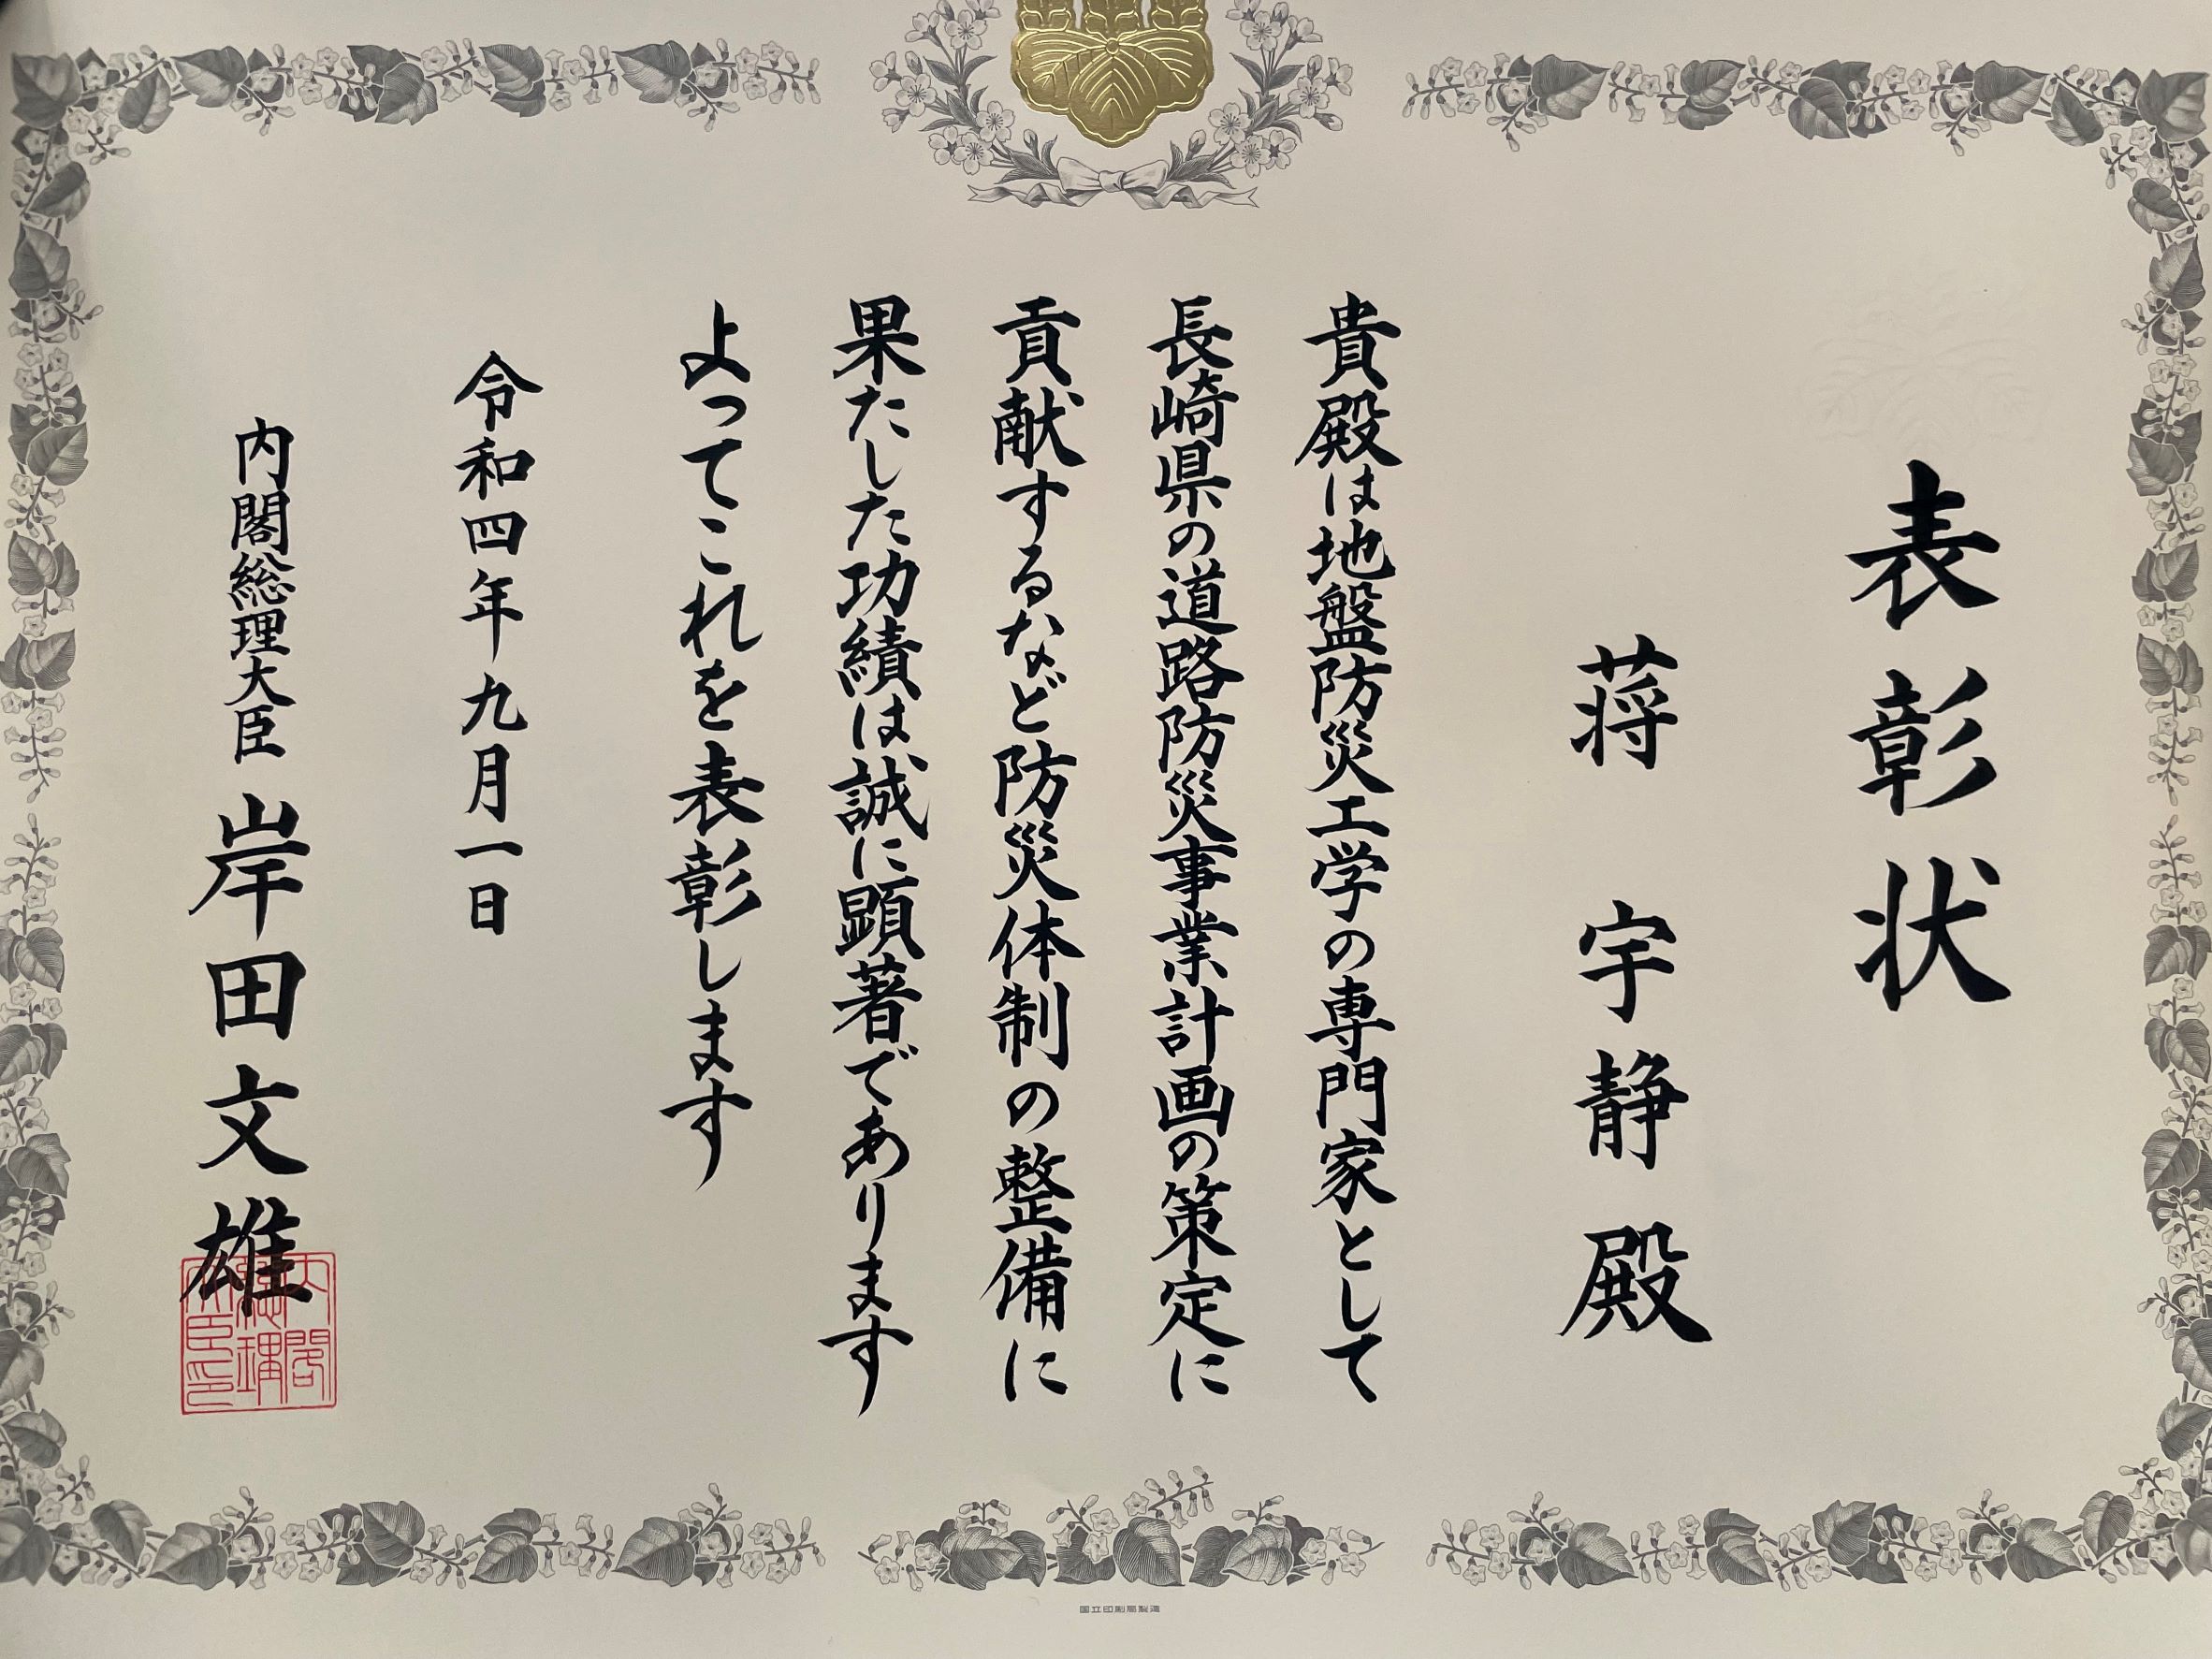 表彰状
蒋宇静殿
貴殿は地盤防災工学の専門家として
長崎県の道路防災事業計画の策定に
貢献するなど防災体制の整備に
果たした功績は誠に顕著であります
よってこれを表彰します
令和四年九月一日
内閣総理大臣 岸田文雄
内閣総理大臣印
国立印刷局製造